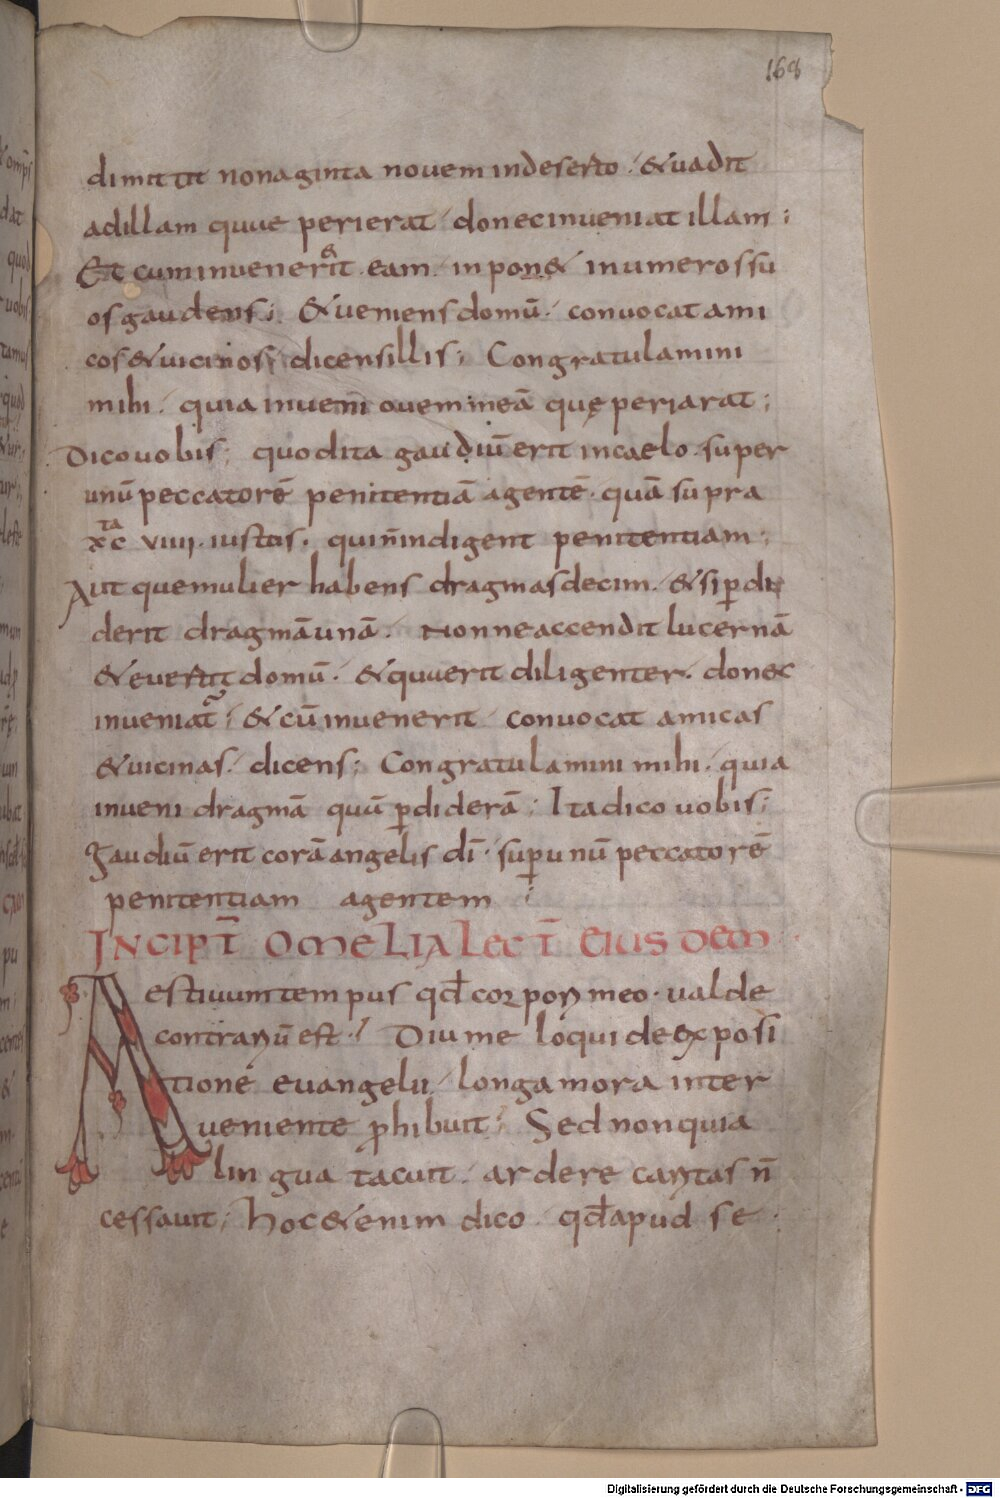 168
dimittit nonaginta novem indeserto · &vadit
adillam quue perierat · donecinveniat illam ;
Et cuminvenerit eam · inpon& inumerossu
osgaudens ; &veniensdomū · convocat ami
cos&vicinos ; dicensillis ; Congratulamini
mihi · quia inveni ovem meā quę periarat ;
Dicovobis ; quodita gaudiūerit incaelo · super
unū peccatorē penitentiā agentē · quā supra
xc ta viiii · iustis · quin̄indigent penitentiam ;
Aut quemulier habens dragmasdecim · &sip̄di
derit dragmāunā · Nonneaccendit lucernā
&evertit domū · &quuerit diligenter · donec
inveniat ; &cū invenerit convocat amicas
&vicinas · dicens ; Congratulamini mihi · quia
inveni dragmā quū p̄diderā ; Ita dico vobis ;
gaudiū erit corā angelis dī · sup̄unū peccatorē
penitentiam agentem ;
INCIPT̄ OMELIA LECT̄ EIUSDEM
Aestivum tempus qđ corpori meo · valde
contrariū est · Diu me loqui de exposi
tione evangelii · longa mora inter
veniente p̄hibuit ; Sed non quia
lingua tacuit · ardere caritas n̄
cessavit ; hoc&enim dico · qđapud se ·
Digitalisierung gefördert durch die Deutsche Forschungsgemeinschaft - DFG